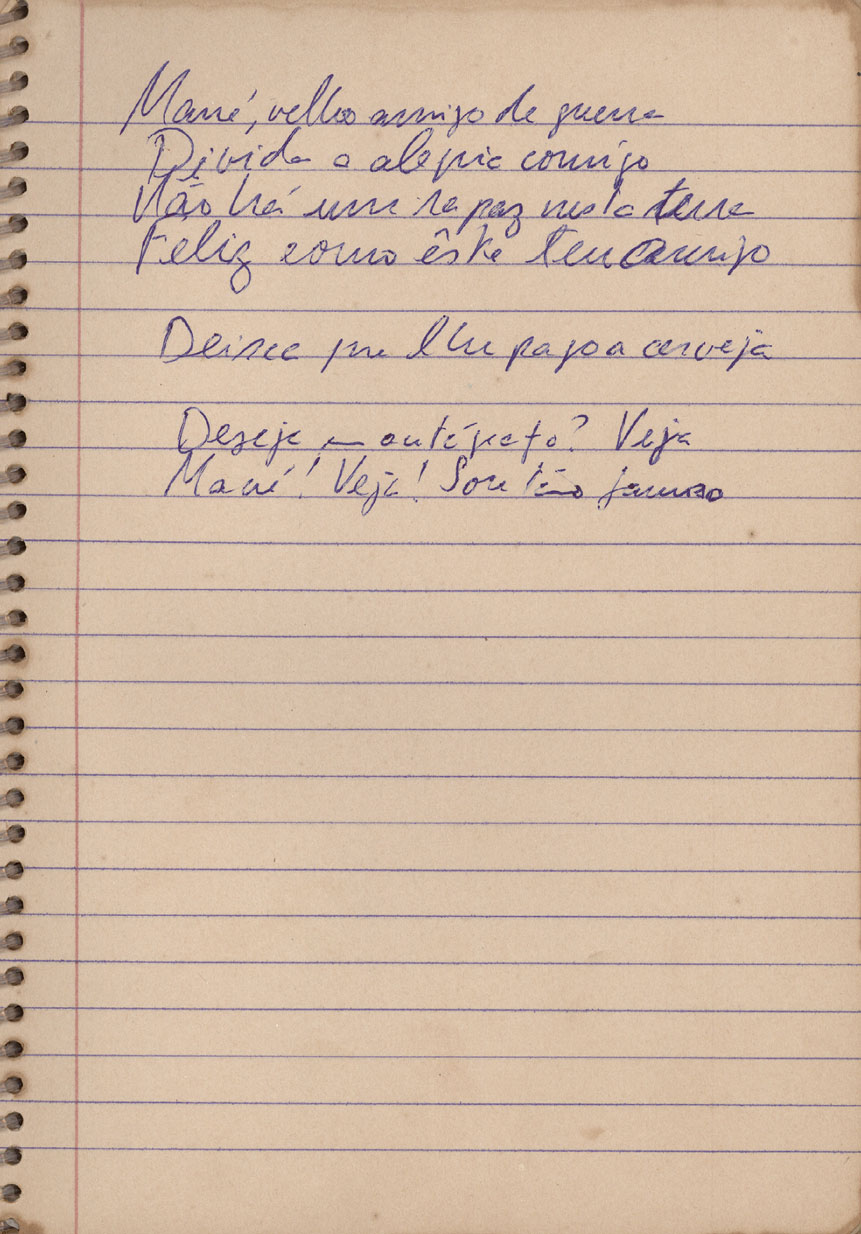 Mané, velho amigo de guerra
Divida a alegria comigo
Não há um rapaz nesta terra
Feliz como êste teu amigo
Deixa que lhe pago a cerveja
Deseja um autógrafo? Veja
Mané! Veja! Sou tão famoso